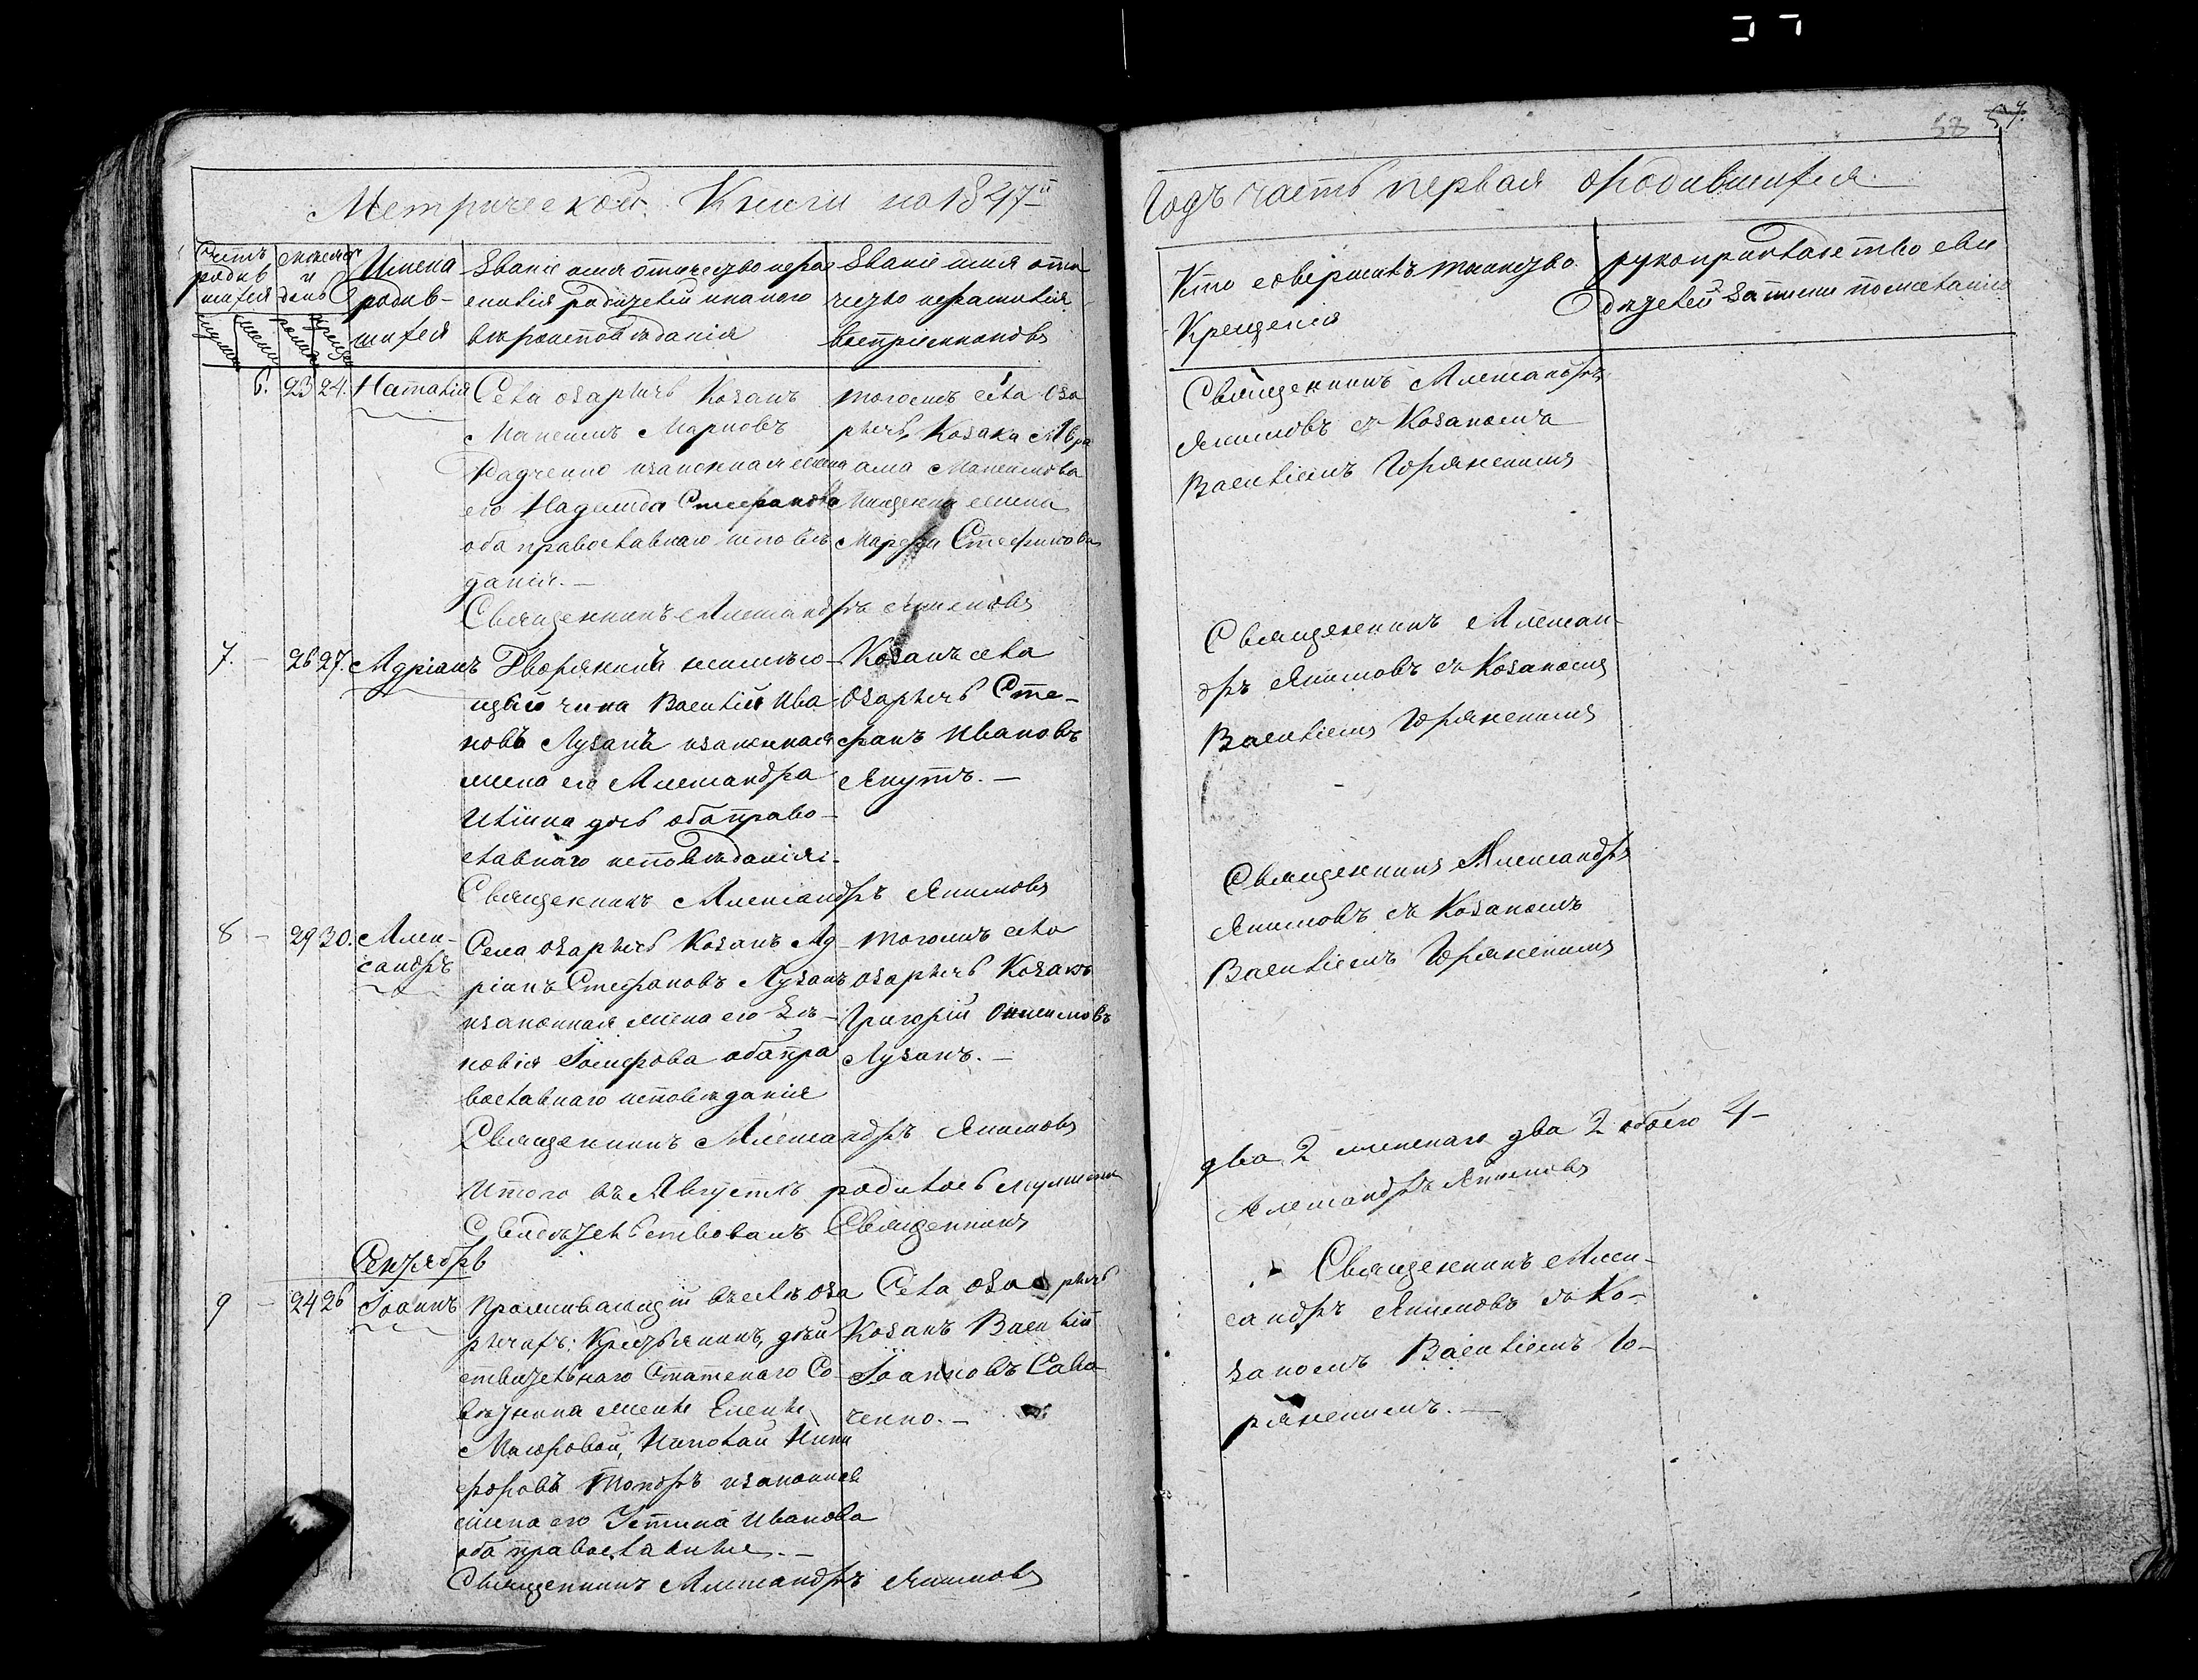 57.
58
Метрической Книги на 1847й
Годъ часть первая о родившихся
Счетъ родив шихся
Мужеска
женска
Мѣсяцъ и день
рожденія
крещенія
Имена
родив-
шихся
Званіе имя отчество и фами
лія родителей и какого
вѣроисповѣданія
Званіе имя отче
ство и фамилія
воспріемниковъ
Кто совершалъ таинство
Крещенія
рукоприкладство сви
дѣтелей записи по желанію
6. 23 24. Наталія
Села Озаричь Козакъ
Марковъ
Радченко и законная жена
его Надежда Стефанова
оба православнаго исповѣ
данія.—
Священникъ Александръ Якимовъ
тогожъ села Оза
ричь, Козака Авра
ама Максимова
жена
Марфа Стефанова
Священникъ Александръ
Якимовъ съ Козакомъ
Василіемъ
7. — 26 27. Адріанъ
Дворянинъ неимѣю-
щій чина Василій Ива
новъ Лузанъ и законная
жена его Александра
Иліина дочь оба право-
славнаго исповѣданія:-
Священникъ Александръ Якимовъ
Козакъ села
Озаричь Сте-
фанъ Ивановъ
Якутъ.—
Священникъ Алексан-
дръ Якимовъ съ Козакомъ
Василіемъ
8 — 29 30. Алек-
сандръ
Села Озаричь Козакъ Ад-
ріанъ Стефановъ Лузанъ
и законная жена его Зѣ-
новія Іосифова оба пра
вославнаго исповѣданія
Священникъ Александръ Якимовъ
тогожъ села
Озаричь Козакъ
Григорій
Лузанъ.—
Священникъ Александръ
Якимовъ съ Козакомъ
Василіемъ
Итого въ Августѣ родилось мужеска
два 2 женскаго два 2 обоего 4-
Свидѣтельствовалъ Священникъ
Александръ Якимовъ
Сентябрь
9 — 24 26 Іоаннъ
Проживающій въ селѣ Оза
ричахъ: Крестьянинъ, дѣй
ствительнаго Статскаго Со-
вѣтника жены Елены
Маіоровой, Николай Ники
форовъ и законная
жена его Устина Иванова
оба православные.—
Священникъ Александръ Якимовъ
Села Озаричь
Козакъ Василій
Іоанновъ Сава
ченко.—
Священникъ Алек-
сандръ Якимовъ съ Ко-
закомъ Василіемъ